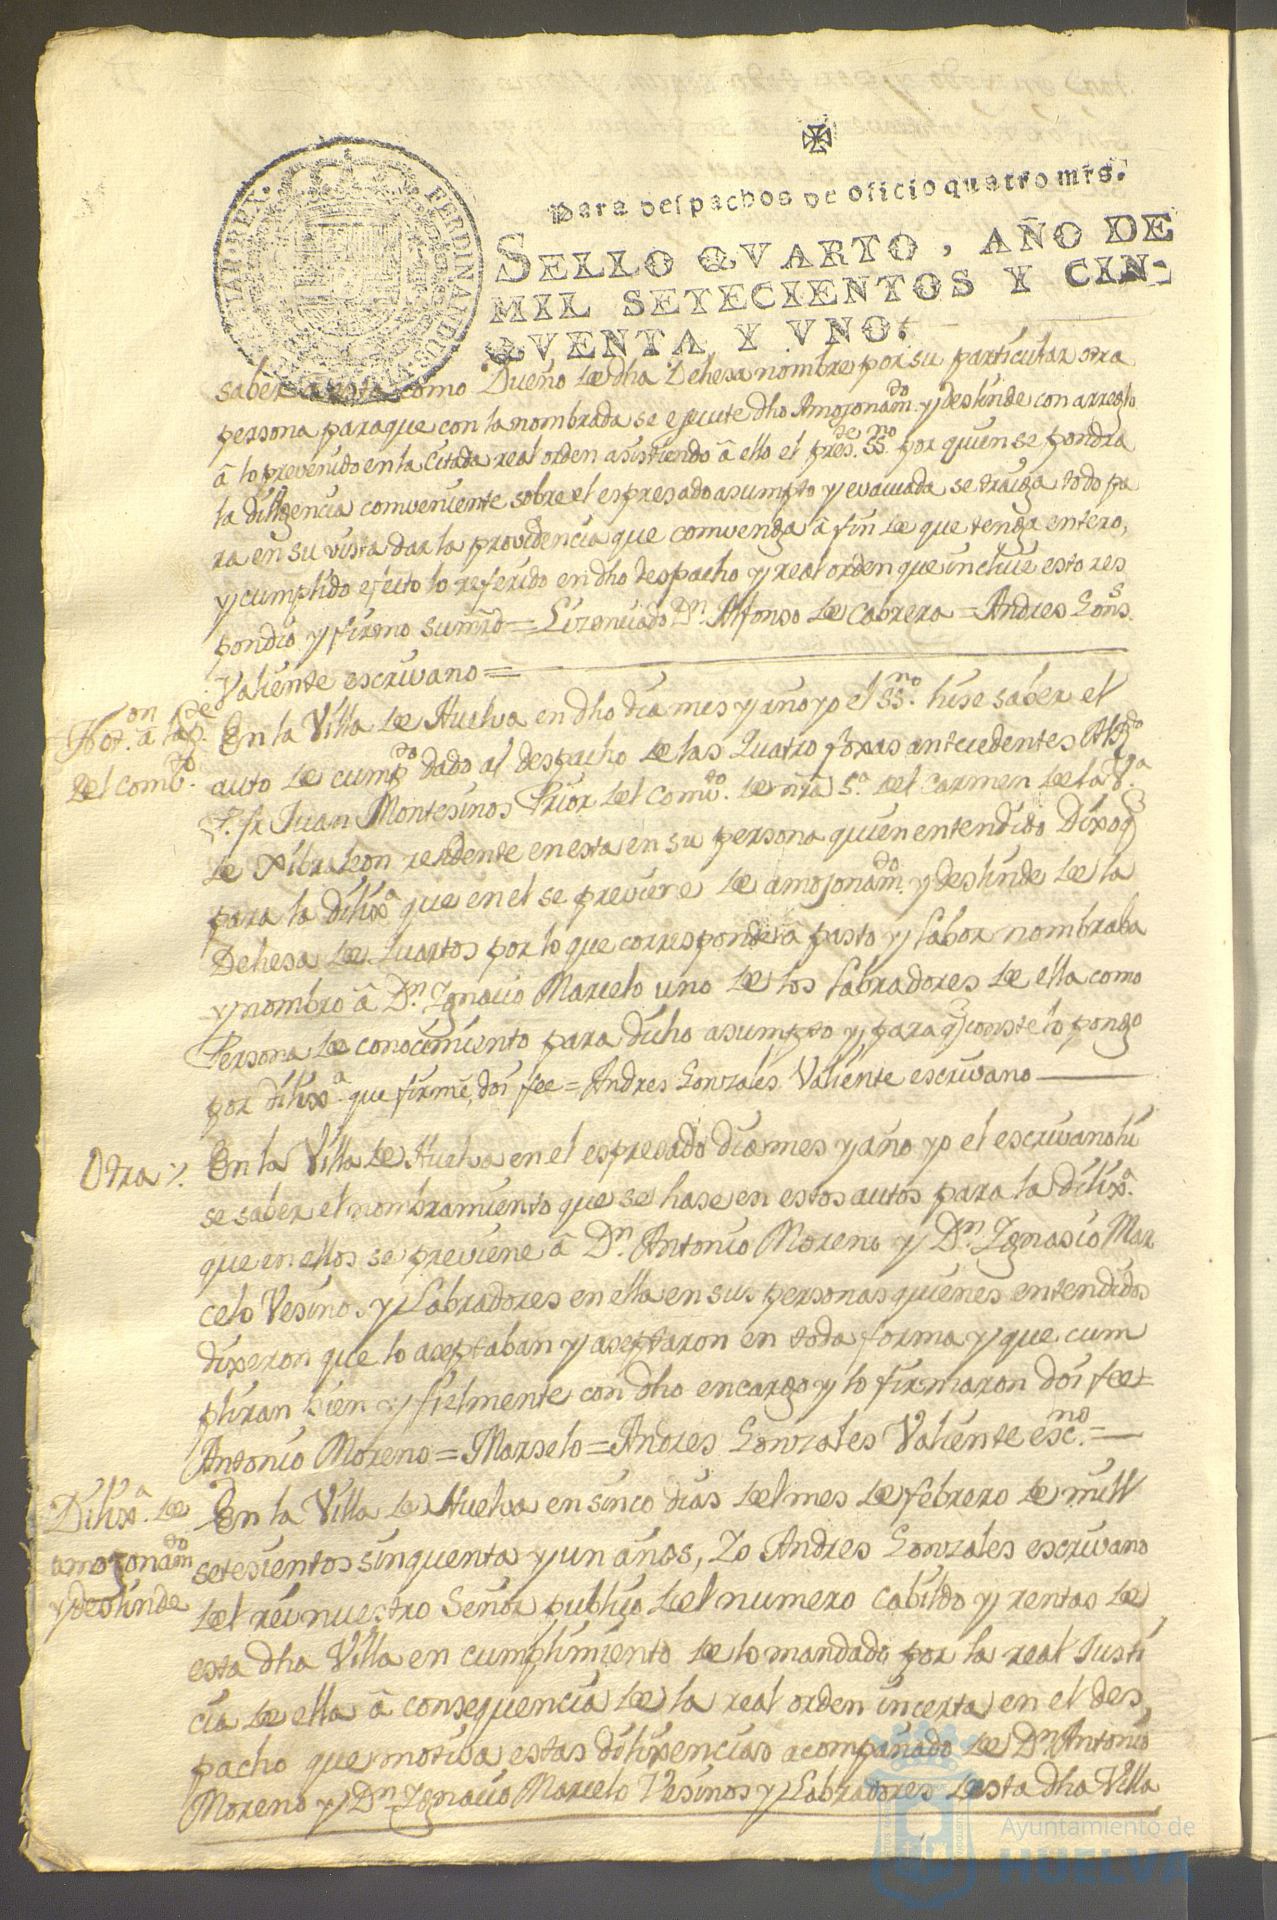 Para despachos de oficio quatro mrs.
SELLO QVARTO, AÑO DE
MIL SETECIENTOS Y CIN-
QVENTA Y VNO.
FERDINANDUS
HISPANIAR REX
saber a esta como Dueño de dha Dehesa nombre por su particular otra
persona paraque con la nombrada se ejecute dho Amojonam.do y deslinde con arreglo
â lo prevenido en la Citada real orden asistiendo â ello el pres.te ss.no por quien se pondra
la dilígencia comveniente sobre el espresado asumpto y evacuada se traiga todo pa
ra en su vista dar la providencia que comvenga â fin de que tenga entero,
y cumplido efecto lo referido en dho despacho y real orden que incluie esto res
pondio y firmo sumrd = Lizenciado Dn. Alfonso de Cabrera = Andres Gons.
Valiente escrivano =
Not.on a la p.te
del comb.to
En la Villa de Huelva en dho dia mes y año yo el ss.no hise saber el
auto de cump.to dado al despacho de las quatro foxas antecedentes Al
P. fr Juan Montesinos Prior del Comv.to de nra S.a del Carmen de la V.a
de Xibraleon residente en esta en su persona quien entendido Dixo q
para la dilix.a que en el se previere de amojonam.do y deslinde de la
Dehesa de Quartos por lo que corresponde â pasto y labor nombraba
y nombro â Dn. Ignacio Marcelo uno de los labradores de ella como
Persona de conocimiento para dicho asumpto y para q conste lo pongo
por dilix.a que firmé, doi fee = Andres Gonzales Valiente escrivano
Otra %.
En la Villa de Huelva en el espresado dia mes y año yo el escrivano hi
se saber el nombramiento que se hase en estos autos para la dilix.a
que en ellos se previene â Dn. Antonio Moreno y Dn. Ignasio Mar
celo Vesinos y Labradores en ella en sus personas quienes entendidos
dixeron que lo aseptaban y aseptaron en toda forma y que cum
pliran bien y fielmente con dho encargo y lo firmaron doi fee =
Antonio Moreno = Marselo = Andres Gonzales Valiente esc.no =
Dilix.a de
amojonam.do
y deslinde
En la Villa de Huelva en sinco dias del mes de febrero de mill
setesientos sinquenta y un años, Yo Andres Gonzales escrivano
del rei nuestro Señor publico del numero cabildo y rentas de
esta dha Villa en cumplimiento de lo mandado por la real Justi
cia de ella â consequencia de la real orden incerta en el des
pacho que motiva estas dilixencias acompañado de Dn. Antonio
Moreno y Dn. Ignacio Marcelo Vesinos y Labradores desta dha Villa
Ayuntamiento de
HUELVA